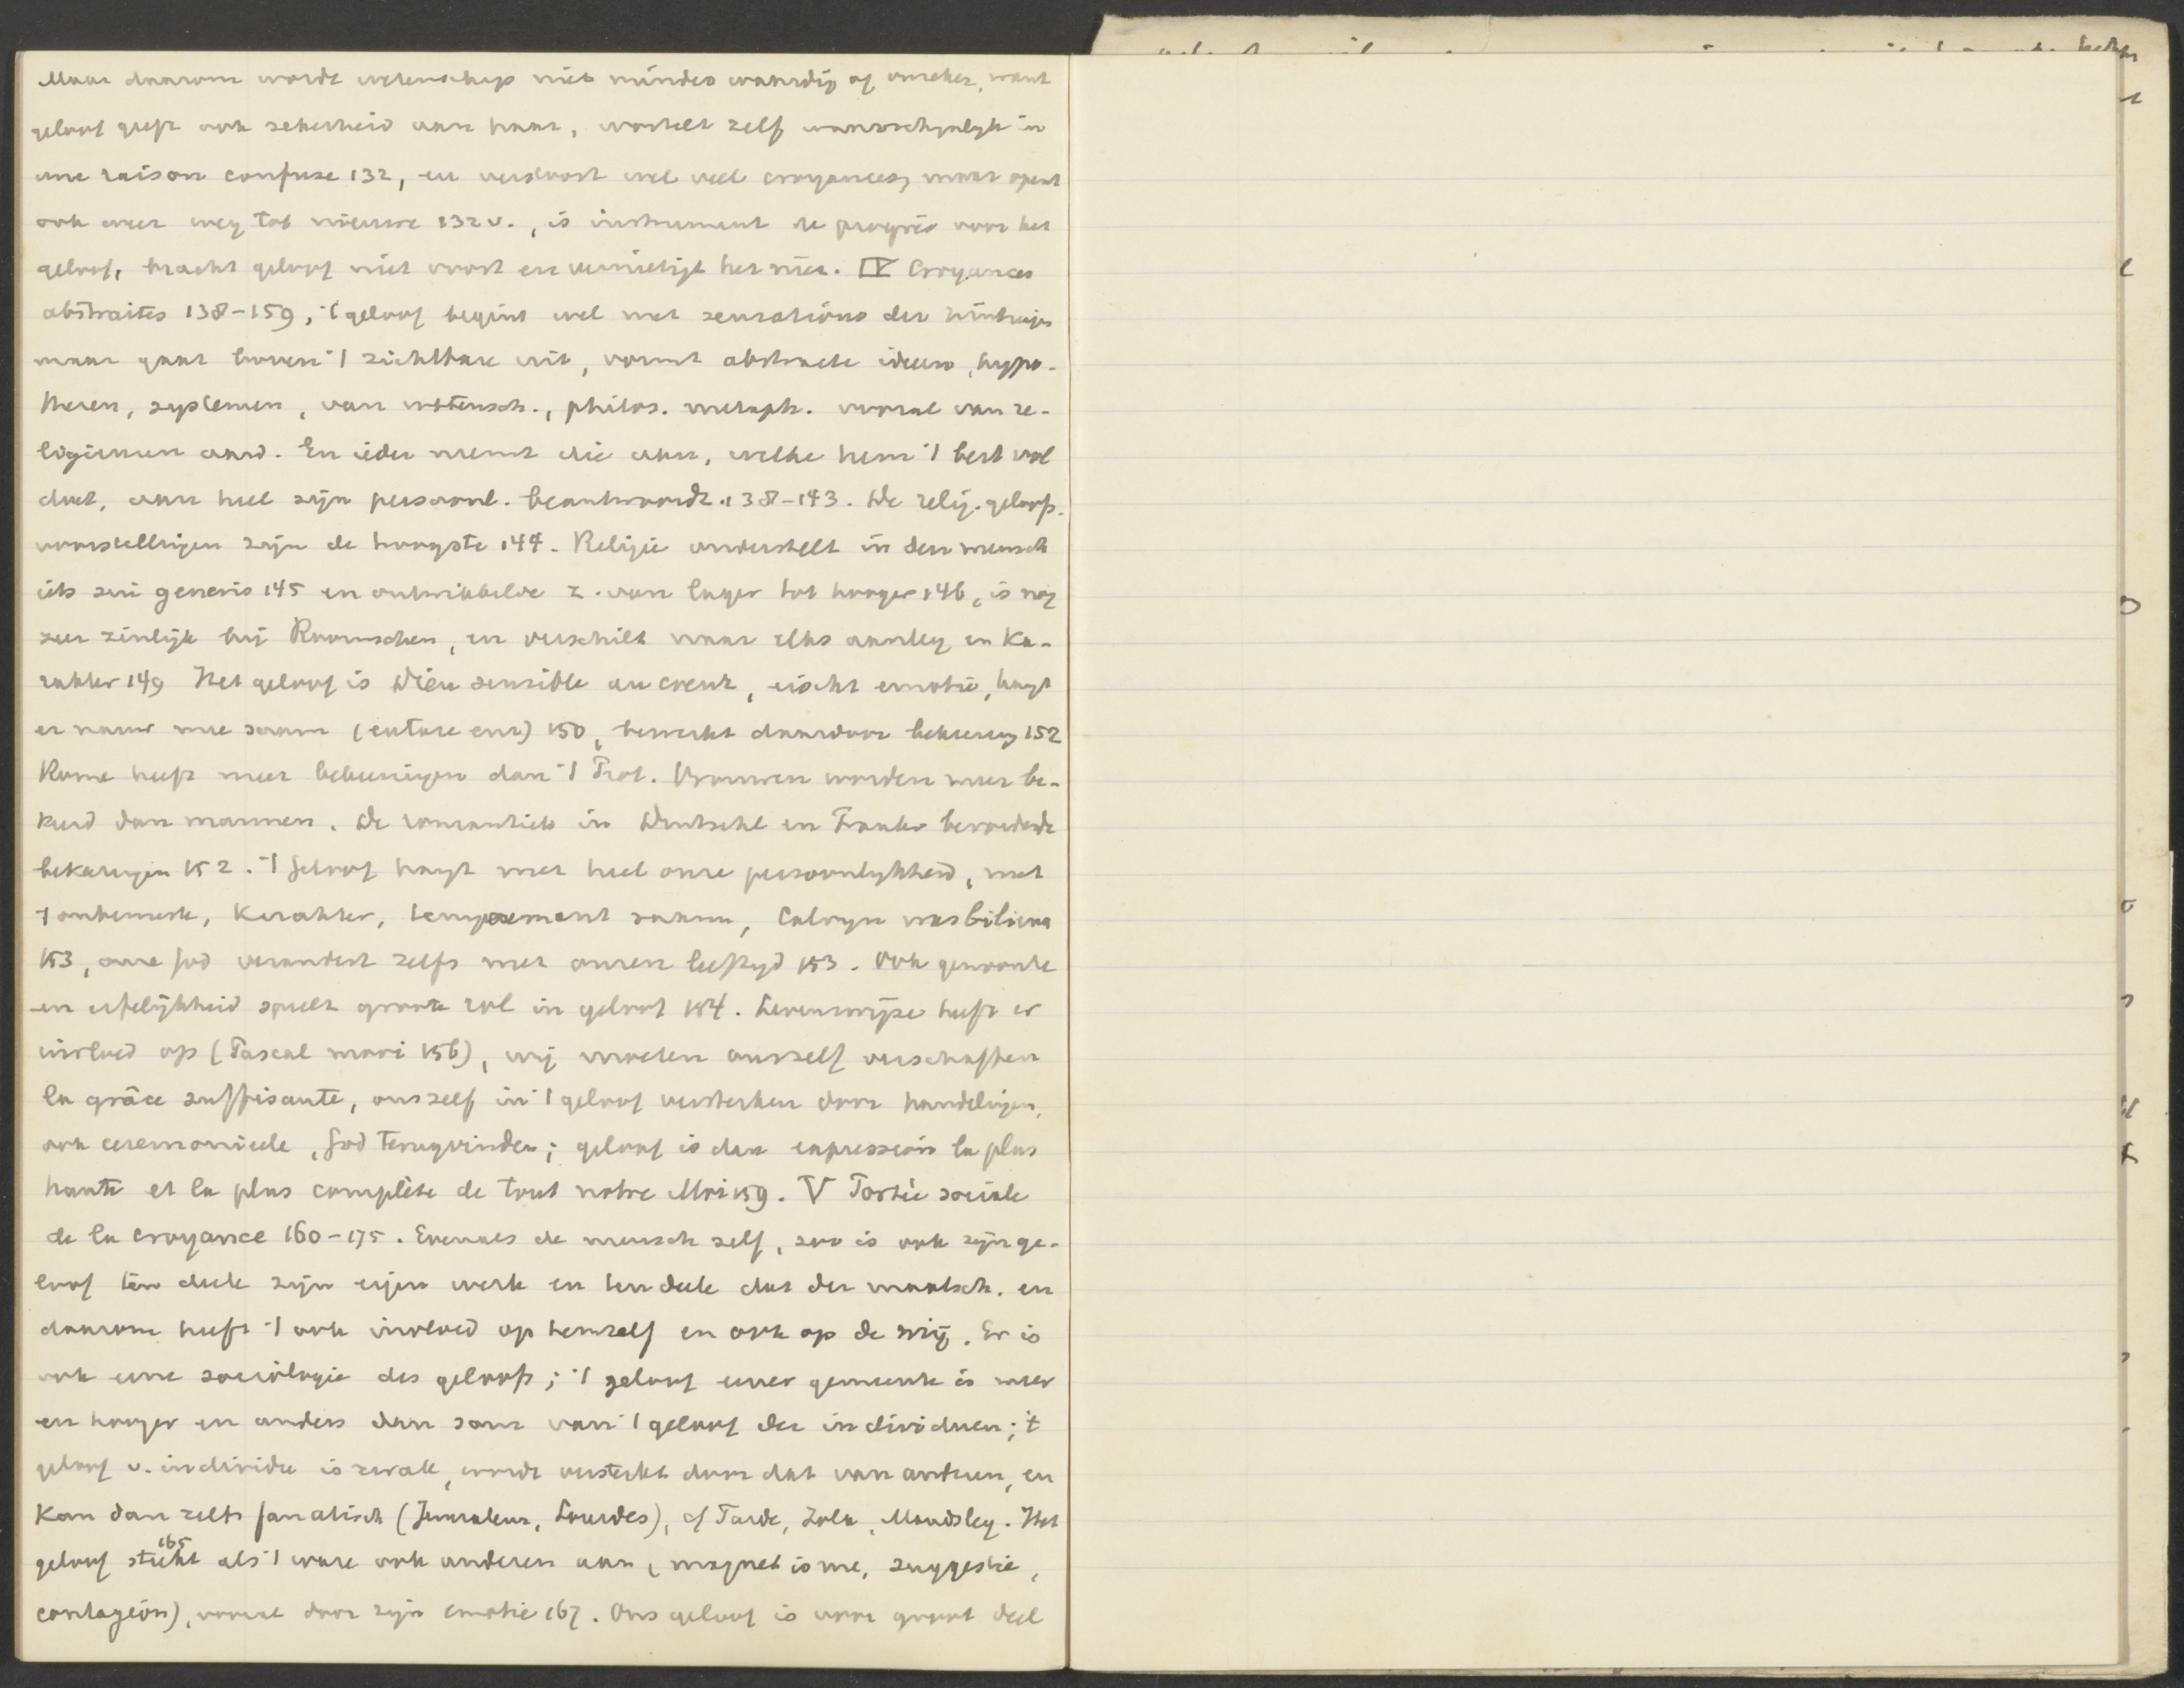 Maar daarom wordt wetenschap niet minder waardig of onzeker, want
geloof geeft ook zekerheid aan haar, wortelt zelf waarschynlyk in
une raison confuse 132, en verstoort wel veel croyances, maar opent
ook weer weg tot nieuwe 132 v., is instrument de progrès voor het
geloof, bracht geloof niet voort en vernietigt het niet. IV Croyances
abstraites 138-159, 't geloof begint wel met sensations der zintuigen
maar gaat boven 't zichtbare uit, vormt abstracte ideeen, hypo-
thesen, systemen, van wetensch., philos. metaph. vooral van re-
ligieusen aard. En ieder neemt die aan, welke hem 't best vol
doet, aan heel zijn persoonl. beantwoordt. 138-143. De relig. geloofs.
voorstellingen zijn de hoogste 144. Religie onderstelt in den mensch
iets sui generis 145 en ontwikkelde z. van lager tot hooger 146, is nog
zeer zinlijk bij Roomschen, en verschilt naar elks aanleg en Ka-
rakter 149 Het geloof is Dieu sensible au coeur, eischt emotie, hangt
er nauw mee saam 150, bewerkt daardoor bekeering 152
Rome heeft meer bekeeringen dan 't Prot. Vrouwen worden meer be-
keerd dan mannen. De romantiek in Duitschl en Frankr bevorderde
bekeringen 152. 't Geloof hangt met heel onze persoonlykheid, met
't onbewuste, Karakter, temperament samen, Calvyn was bilieux
153, onze God verandert zelfs met onzen leeftyd 153. Ook gewoonte
en erfelijkheid speelt groote rol in geloof 154. Levenswijze heeft er
invloed op (Pascal 156), wij moeten onszelf verschaffen
la grâce suffisante, onszelf in 't geloof versterken door handelingen,
ook ceremonieele, God terugvinden; geloof is dan expression la plus
haute et la plus complète de tout notre Moi 159. V Portée sociale
de la croyance 160-175. Evenals de mensch zelf, zoo is ook zijn ge-
loof ten deele zijn eigen werk en ten deele dat der maatsch. en
daarom heeft 't ook invloed op hemzelf en ook op de mij. Er is
ook eene sociologie des geloofs; 't geloof eener gemeente is meer
en hooger en anders dan som van 't geloof der individuen; 't
geloof v. individu is zwak, wordt versterkt door dat van anderen, en
Kan dan zelfs fanatisch (Jeruzalem, Lourdes), cf Tarde, Zola, Maudsley. Het
geloof steekt 165 als 't ware ook anderen aan (magnetisme, suggestie,
contagion), vooral door zijn emotie 167. Ons geloof is voor groot deel